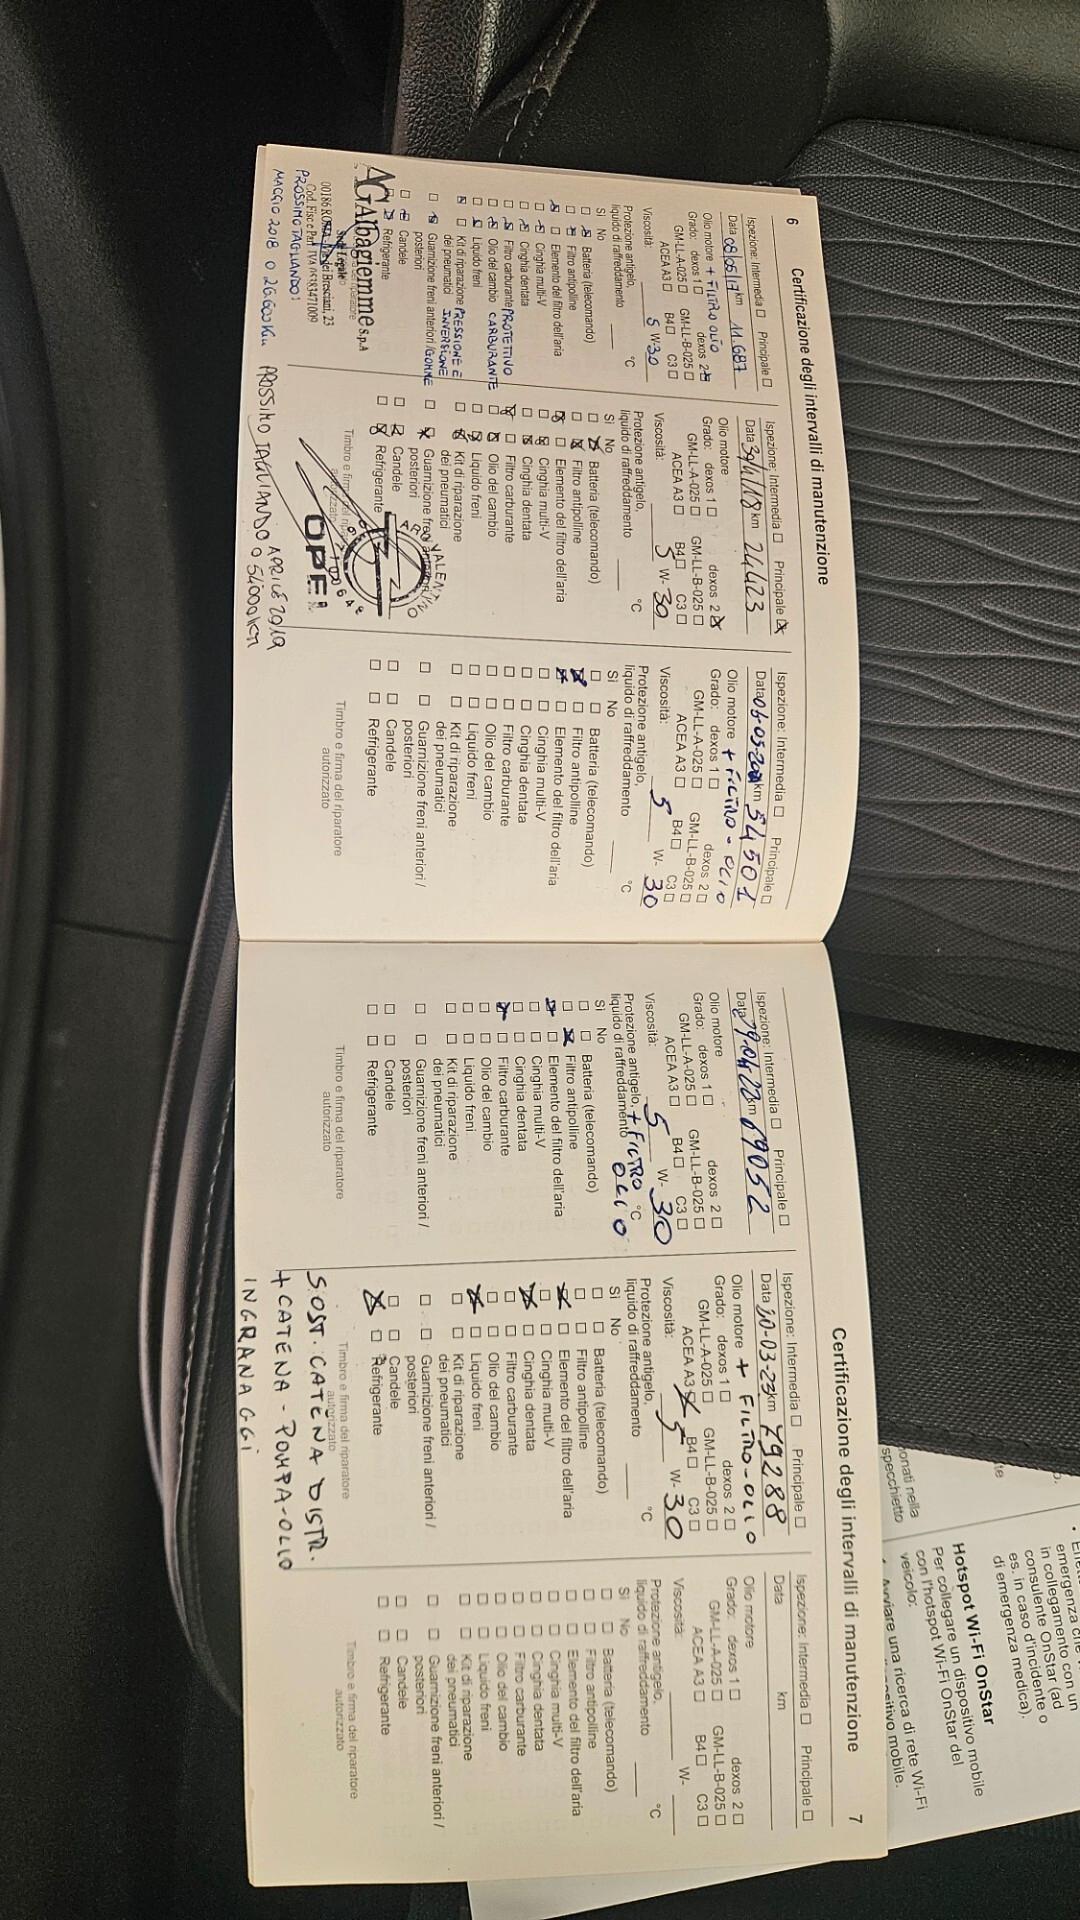 6
Certificazione degli intervalli di manutenzione
Ispezione: Intermedia ☐ Principale ☐
Data 05/05/17 km 11.687
Olio motore + FILTRO OLIO
Grado: dexos 1 ☐ dexos 2 ☒
GM-LL-A-025 ☐ GM-LL-B-025 ☐
ACEA A3 ☐ B4 ☐ C3 ☐
Viscosità: 5 W-30
Protezione antigelo,
liquido di raffreddamento °C
Sì No
Batteria (telecomando)
Filtro antipolline
Elemento del filtro dell'aria
Cinghia multi-V
Cinghia dentata
Filtro carburante PROTETTIVO
Olio del cambio CARBURANTE
Liquido freni
Kit di riparazione PRESSIONE E
dei pneumatici INVERSIONE
Guarnizione freni anteriori / GOMME
posteriori
Candele
Refrigerante
AGAlbagiemme S.p.A
Sede Legale
00186 ROMA Bresciani, 23
Cod. Fisc e Part IVA
PROSSIMO TAGLIANDO:
MAGGIO 2018 O 26.600 Km
Ispezione: Intermedia ☐ Principale ☒
Data 30/4/18 km 24423
Olio motore
Grado: dexos 1 ☐ dexos 2 ☒
GM-LL-A-025 ☐ GM-LL-B-025 ☐
ACEA A3 ☐ B4 ☐ C3 ☐
Viscosità: 5 W-30
Protezione antigelo,
liquido di raffreddamento °C
Sì No
Batteria (telecomando)
Filtro antipolline
Elemento del filtro dell'aria
Cinghia multi-V
Cinghia dentata
Filtro carburante
Olio del cambio
Liquido freni
Kit di riparazione
dei pneumatici
Guarnizione freni anteriori /
posteriori
Candele
Refrigerante
Timbro e firma del riparatore
autorizzato
OPEL
PROSSIMO TAGLIANDO APRILE 2019
O 54000 Km
Ispezione: Intermedia ☐ Principale ☐
Data 06-05- km 54501
Olio motore + FILTRO - OLIO
Grado: dexos 1 ☐ dexos 2 ☐
GM-LL-A-025 ☐ GM-LL-B-025 ☐
ACEA A3 ☐ B4 ☐ C3 ☐
Viscosità: 5 W-30
Protezione antigelo,
liquido di raffreddamento °C
Sì No
☐ ☐ Batteria (telecomando)
☒ ☐ Filtro antipolline
☒ ☐ Elemento del filtro dell'aria
☐ ☐ Cinghia multi-V
☐ ☐ Cinghia dentata
☐ ☐ Filtro carburante
☐ ☐ Olio del cambio
☐ ☐ Liquido freni
☐ ☐ Kit di riparazione
dei pneumatici
☐ ☐ Guarnizione freni anteriori /
posteriori
☐ ☐ Candele
☐ ☐ Refrigerante
Timbro e firma del riparatore
autorizzato
Certificazione degli intervalli di manutenzione
7
Ispezione: Intermedia ☐ Principale ☐
Data 19-04-22 km 69052
Olio motore
Grado: dexos 1 ☐ dexos 2 ☐
GM-LL-A-025 ☐ GM-LL-B-025 ☐
ACEA A3 ☐ B4 ☐ C3 ☐
Viscosità: 5 W-30
Protezione antigelo, + FILTRO °C
liquido di raffreddamento OLIO
Sì No
☐ ☐ Batteria (telecomando)
☐ ☒ Filtro antipolline
☒ ☐ Elemento del filtro dell'aria
☐ ☐ Cinghia multi-V
☐ ☐ Cinghia dentata
☒ ☐ Filtro carburante
☐ ☐ Olio del cambio
☐ ☐ Liquido freni
☐ ☐ Kit di riparazione
dei pneumatici
☐ ☐ Guarnizione freni anteriori /
posteriori
☐ ☐ Candele
☐ ☐ Refrigerante
Timbro e firma del riparatore
autorizzato
Ispezione: Intermedia ☐ Principale ☐
Data 20-03-23 km 79288
Olio motore + FILTRO-OLIO
Grado: dexos 1 ☐ dexos 2 ☐
GM-LL-A-025 ☐ GM-LL-B-025 ☐
ACEA A3 ☒ B4 ☐ C3 ☐
Viscosità: 5 W-30
Protezione antigelo,
liquido di raffreddamento °C
Sì No
☐ ☐ Batteria (telecomando)
☐ ☐ Filtro antipolline
☒ ☐ Elemento del filtro dell'aria
☐ ☐ Cinghia multi-V
☒ ☐ Cinghia dentata
☐ ☐ Filtro carburante
☐ ☐ Olio del cambio
☒ ☐ Liquido freni
☐ ☐ Kit di riparazione
dei pneumatici
☐ ☐ Guarnizione freni anteriori /
posteriori
☐ ☐ Candele
☒ ☐ Refrigerante
Timbro e firma del riparatore
autorizzato
SOST. CATENA DISTR.
+ CATENA - POMPA-OLIO
INGRANAGGI
Ispezione: Intermedia ☐ Principale ☐
Data km
Olio motore
Grado: dexos 1 ☐ dexos 2 ☐
GM-LL-A-025 ☐ GM-LL-B-025 ☐
ACEA A3 ☐ B4 ☐ C3 ☐
Viscosità: W-
Protezione antigelo,
liquido di raffreddamento °C
Sì No
☐ ☐ Batteria (telecomando)
☐ ☐ Filtro antipolline
☐ ☐ Elemento del filtro dell'aria
☐ ☐ Cinghia multi-V
☐ ☐ Cinghia dentata
☐ ☐ Filtro carburante
☐ ☐ Olio del cambio
☐ ☐ Liquido freni
☐ ☐ Kit di riparazione
dei pneumatici
☐ ☐ Guarnizione freni anteriori /
posteriori
☐ ☐ Candele
☐ ☐ Refrigerante
Timbro e firma del riparatore
autorizzato
emergenza che
in collegamento con un
consulente OnStar (ad
es. in caso d'incidente o
di emergenza medica).
Hotspot Wi-Fi OnStar
Per collegare un dispositivo mobile
con l'hotspot Wi-Fi OnStar del
veicolo:
Avviare una ricerca di rete Wi-Fi
mobile.
onati nella
specchietto